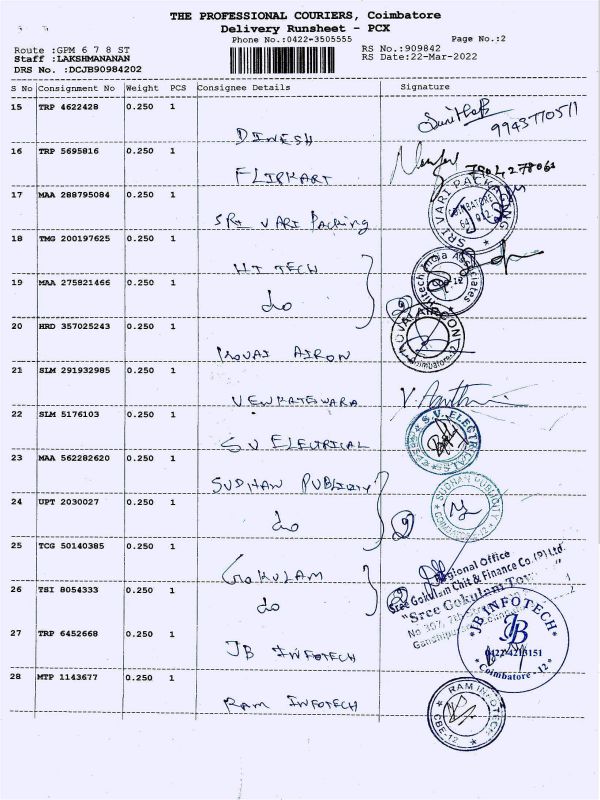 THE PROFESSIONAL COURIERS, Coimbatore
Delivery Runsheet - PCX
Phone No.:0422-3505555 Page No.:2
Route :GPM 6 7 8 ST RS No.:909842
Staff :LAKSHMANANAN RS Date:22-Mar-2022
DRS No. :DCJB90984202
S No Consignment No Weight PCS Consignee Details Signature
15 TRP 4622428 0.250 1
DINESH 9943770511
16 TRP 5695816 0.250 1
FLIPKART
17 MAA 288795084 0.250 1
SRI VARI Packing SRI VARI PACKAGING COIMBATORE
18 TMG 200197625 0.250 1
HI TECH
19 MAA 275821466 0.250 1
do 2 Hitech India Associates CBE-12
20 HRD 357025243 0.250 1
KOVAI AIRON KOVAI AIRCON Coimbatore
21 SLM 291932985 0.250 1
VENKATESWARA
22 SLM 5176103 0.250 1
S.V ELECTRICAL S.V. ELECTRICALS
23 MAA 562282620 0.250 1
SUDHAN PUBLICITY
24 UPT 2030027 0.250 1
do 2 SUDHAN PUBLICITY COIMBATORE-12
25 TCG 50140385 0.250 1
GOKULAM Regional Office
Sree Gokulam Chit & Finance Co.(P) Ltd.
26 TSI 8054333 0.250 1
do 2 "Sree Gokulam
No 307, 7th
27 TRP 6452668 0.250 1
JB INFOTECH * JB INFOTECH * JB 0422-4213151 * Coimbatore - 12 *
28 MTP 1143677 0.250 1
RAM INFOTECH RAM INFOTECH CBE-12